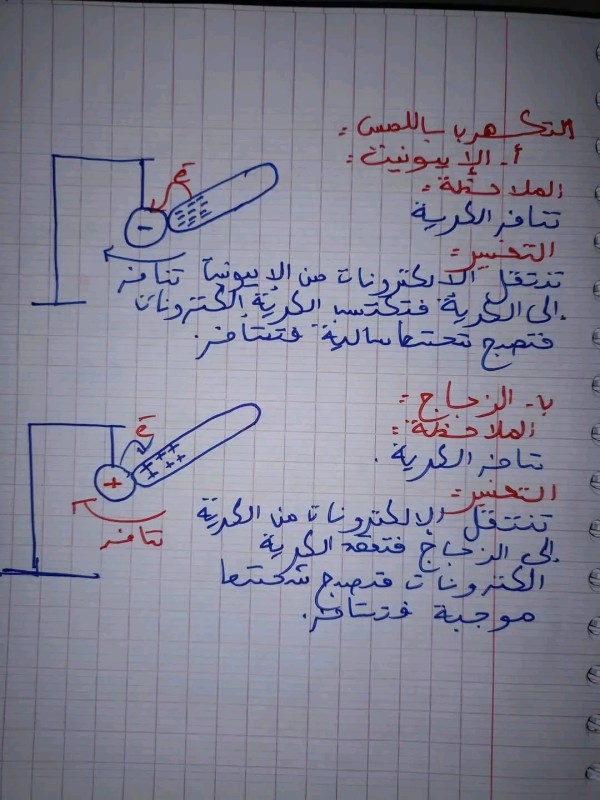 التكهرب باللمس:
أ- الإيبونيت:
الملاحظة:
تنافر الكرية
التفسير:
تنتقل الالكترونات من الإيبونيت
إلى الكرية فتكتسب الكرية إلكترونات
فتصبح شحنتها سالبة فتتنافر.
e⁻
-
تنافر
ب- الزجاج:
الملاحظة:
تنافر الكرية.
التفسير:
تنتقل الإلكترونات من الكرية
إلى الزجاج فتفقد الكرية
الكترونات فتصبح شحنتها
موجبة فتتنافر.
e⁻
+
++++
++
تنافر